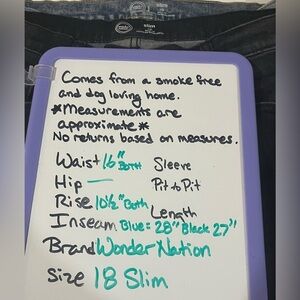 slim
Comes from a smoke free
and dog loving home.
*Measurements are
approximate*
No returns based on measures.
Waist 16" Both Sleeve
Hip — Pit to Pit
Rise 10½" Both Length
Inseam Blue = 28" Black 27"
Brand Wonder Nation
Size 18 Slim